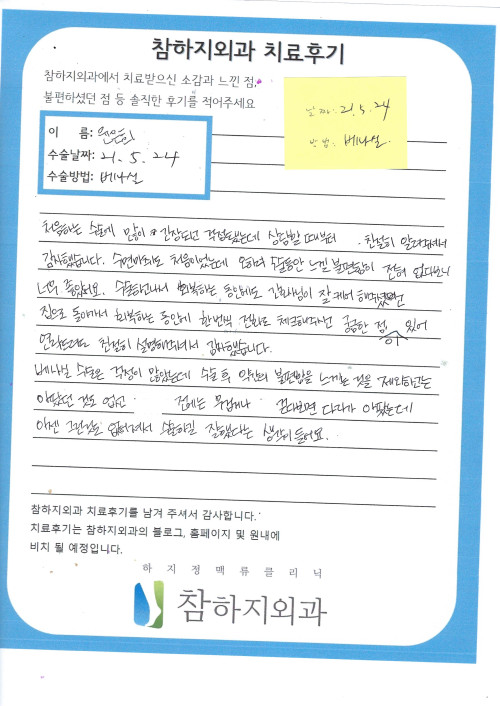 참하지외과 치료후기
참하지외과에서 치료받으신 소감과 느낀 점,
불편하셨던 점 등 솔직한 후기를 적어주세요
날짜: 21. 5. 24
방법: 베나실
이 름:
수술날짜: 21. 5. 24
수술방법: 베나실
처음하는 수술에 많이 긴장되고 걱정됐는데 상담할 때부터 친절히 알려주셔서
감사했습니다. 수면마취도 처음이었는데 오히려 수술동안 느낄 불편함이 전혀 없다보니
너무 좋았어요. 수술끝나고 회복하는 동안에도 간호사님이 잘 케어해주셨고
집으로 돌아가서 회복하는 동안에 한번씩 전화로 체크해주시고 궁금한 점 있어
연락드려도 친절히 설명해주셔서 감사했습니다.
베나실 수술은 걱정이 많았는데 수술 후 약간의 불편함을 느끼는 것을 제외하고는
아팠던 것도 없고 전에는 무겁거나 걷다보면 다리가 아팠는데
이젠 그런것도 없어져서 수술하길 잘했다는 생각이 들어요.
참하지외과 치료후기를 남겨 주셔서 감사합니다.
치료후기는 참하지외과의 블로그, 홈페이지 및 원내에
비치 될 예정입니다.
하지정맥류클리닉
참하지외과